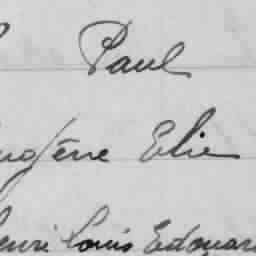 Paul
Eugène Elie
Henri Louis Edouard